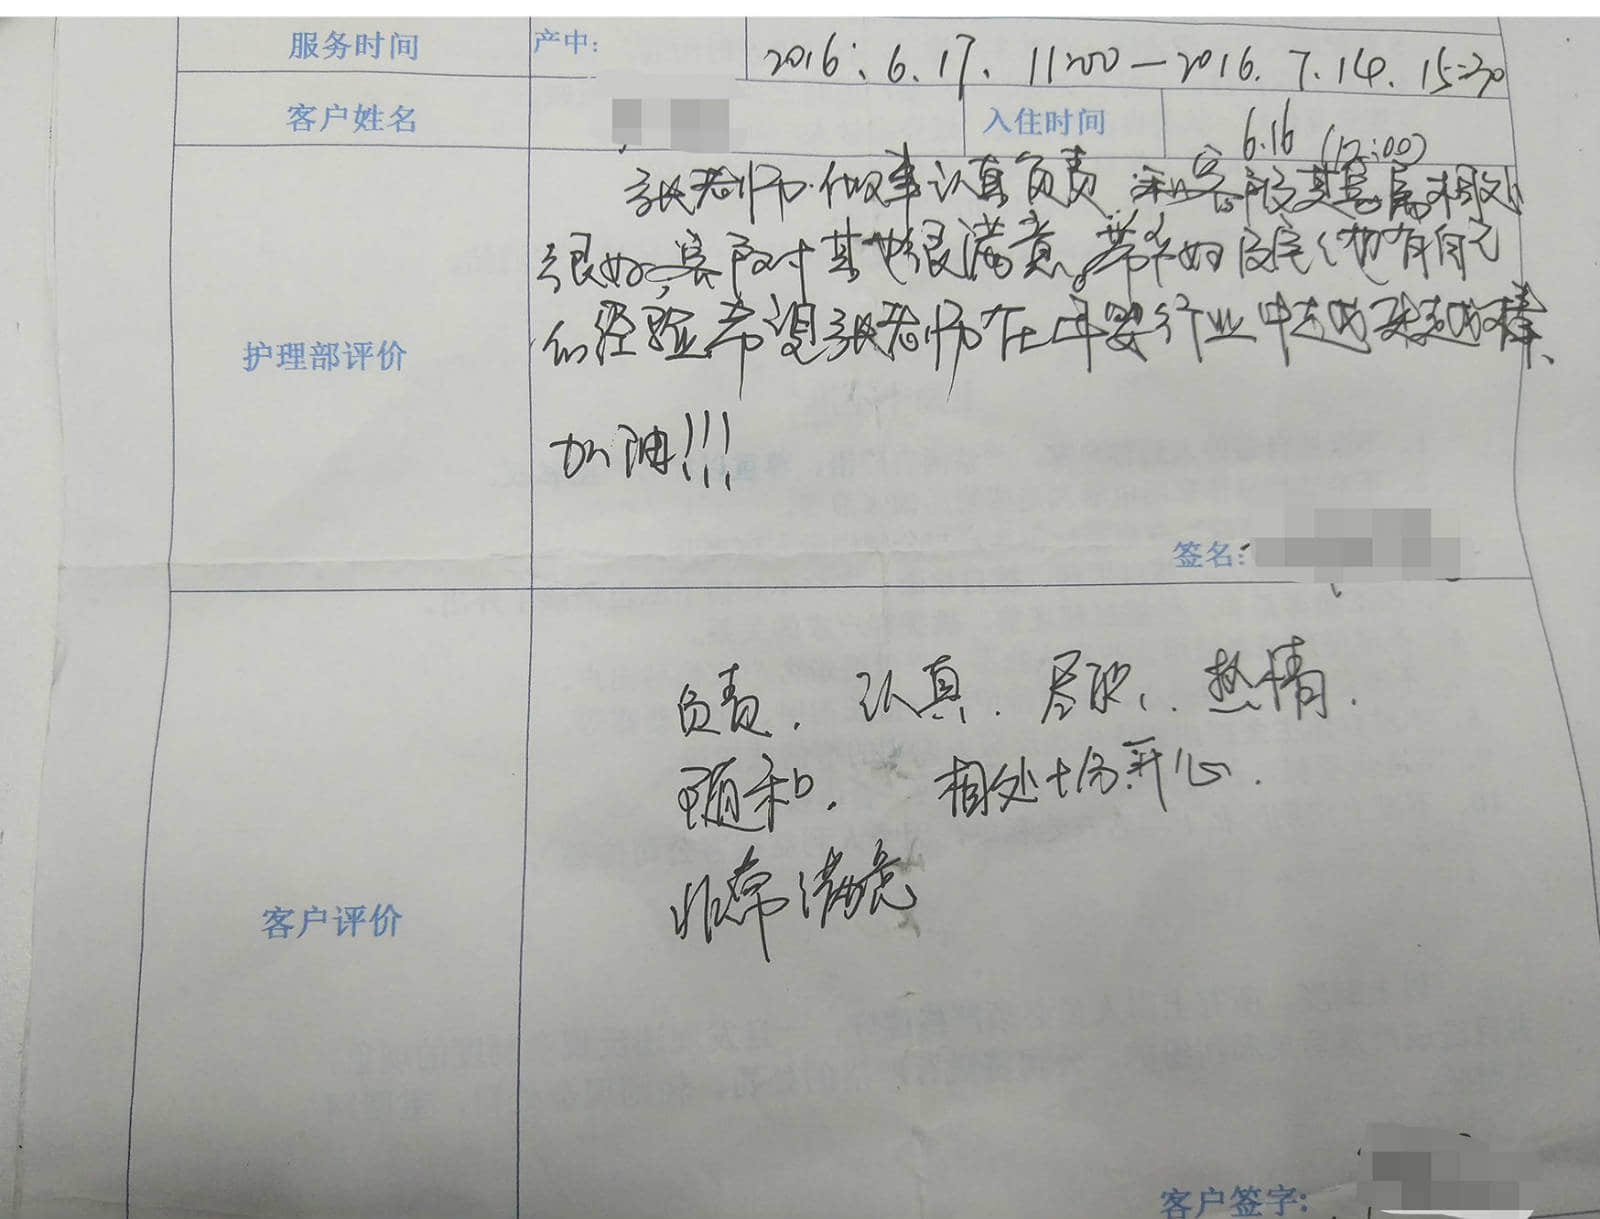 服务时间 产中: 2016. 6.17. 11:00—2016. 7.14. 15:30
客户姓名 入住时间 6.16 (12:00)
护理部评价
张老师做事认真负责.和客户及其家属相处
很好,客户对其也很满意。带 他有自己
的经验希望张老师在母婴行业中越做越棒、
加油!!!
签名:
客户评价
负责. 认真. 尽职、. 热情.
随和. 相处十分开心.
非常满意
客户签字: